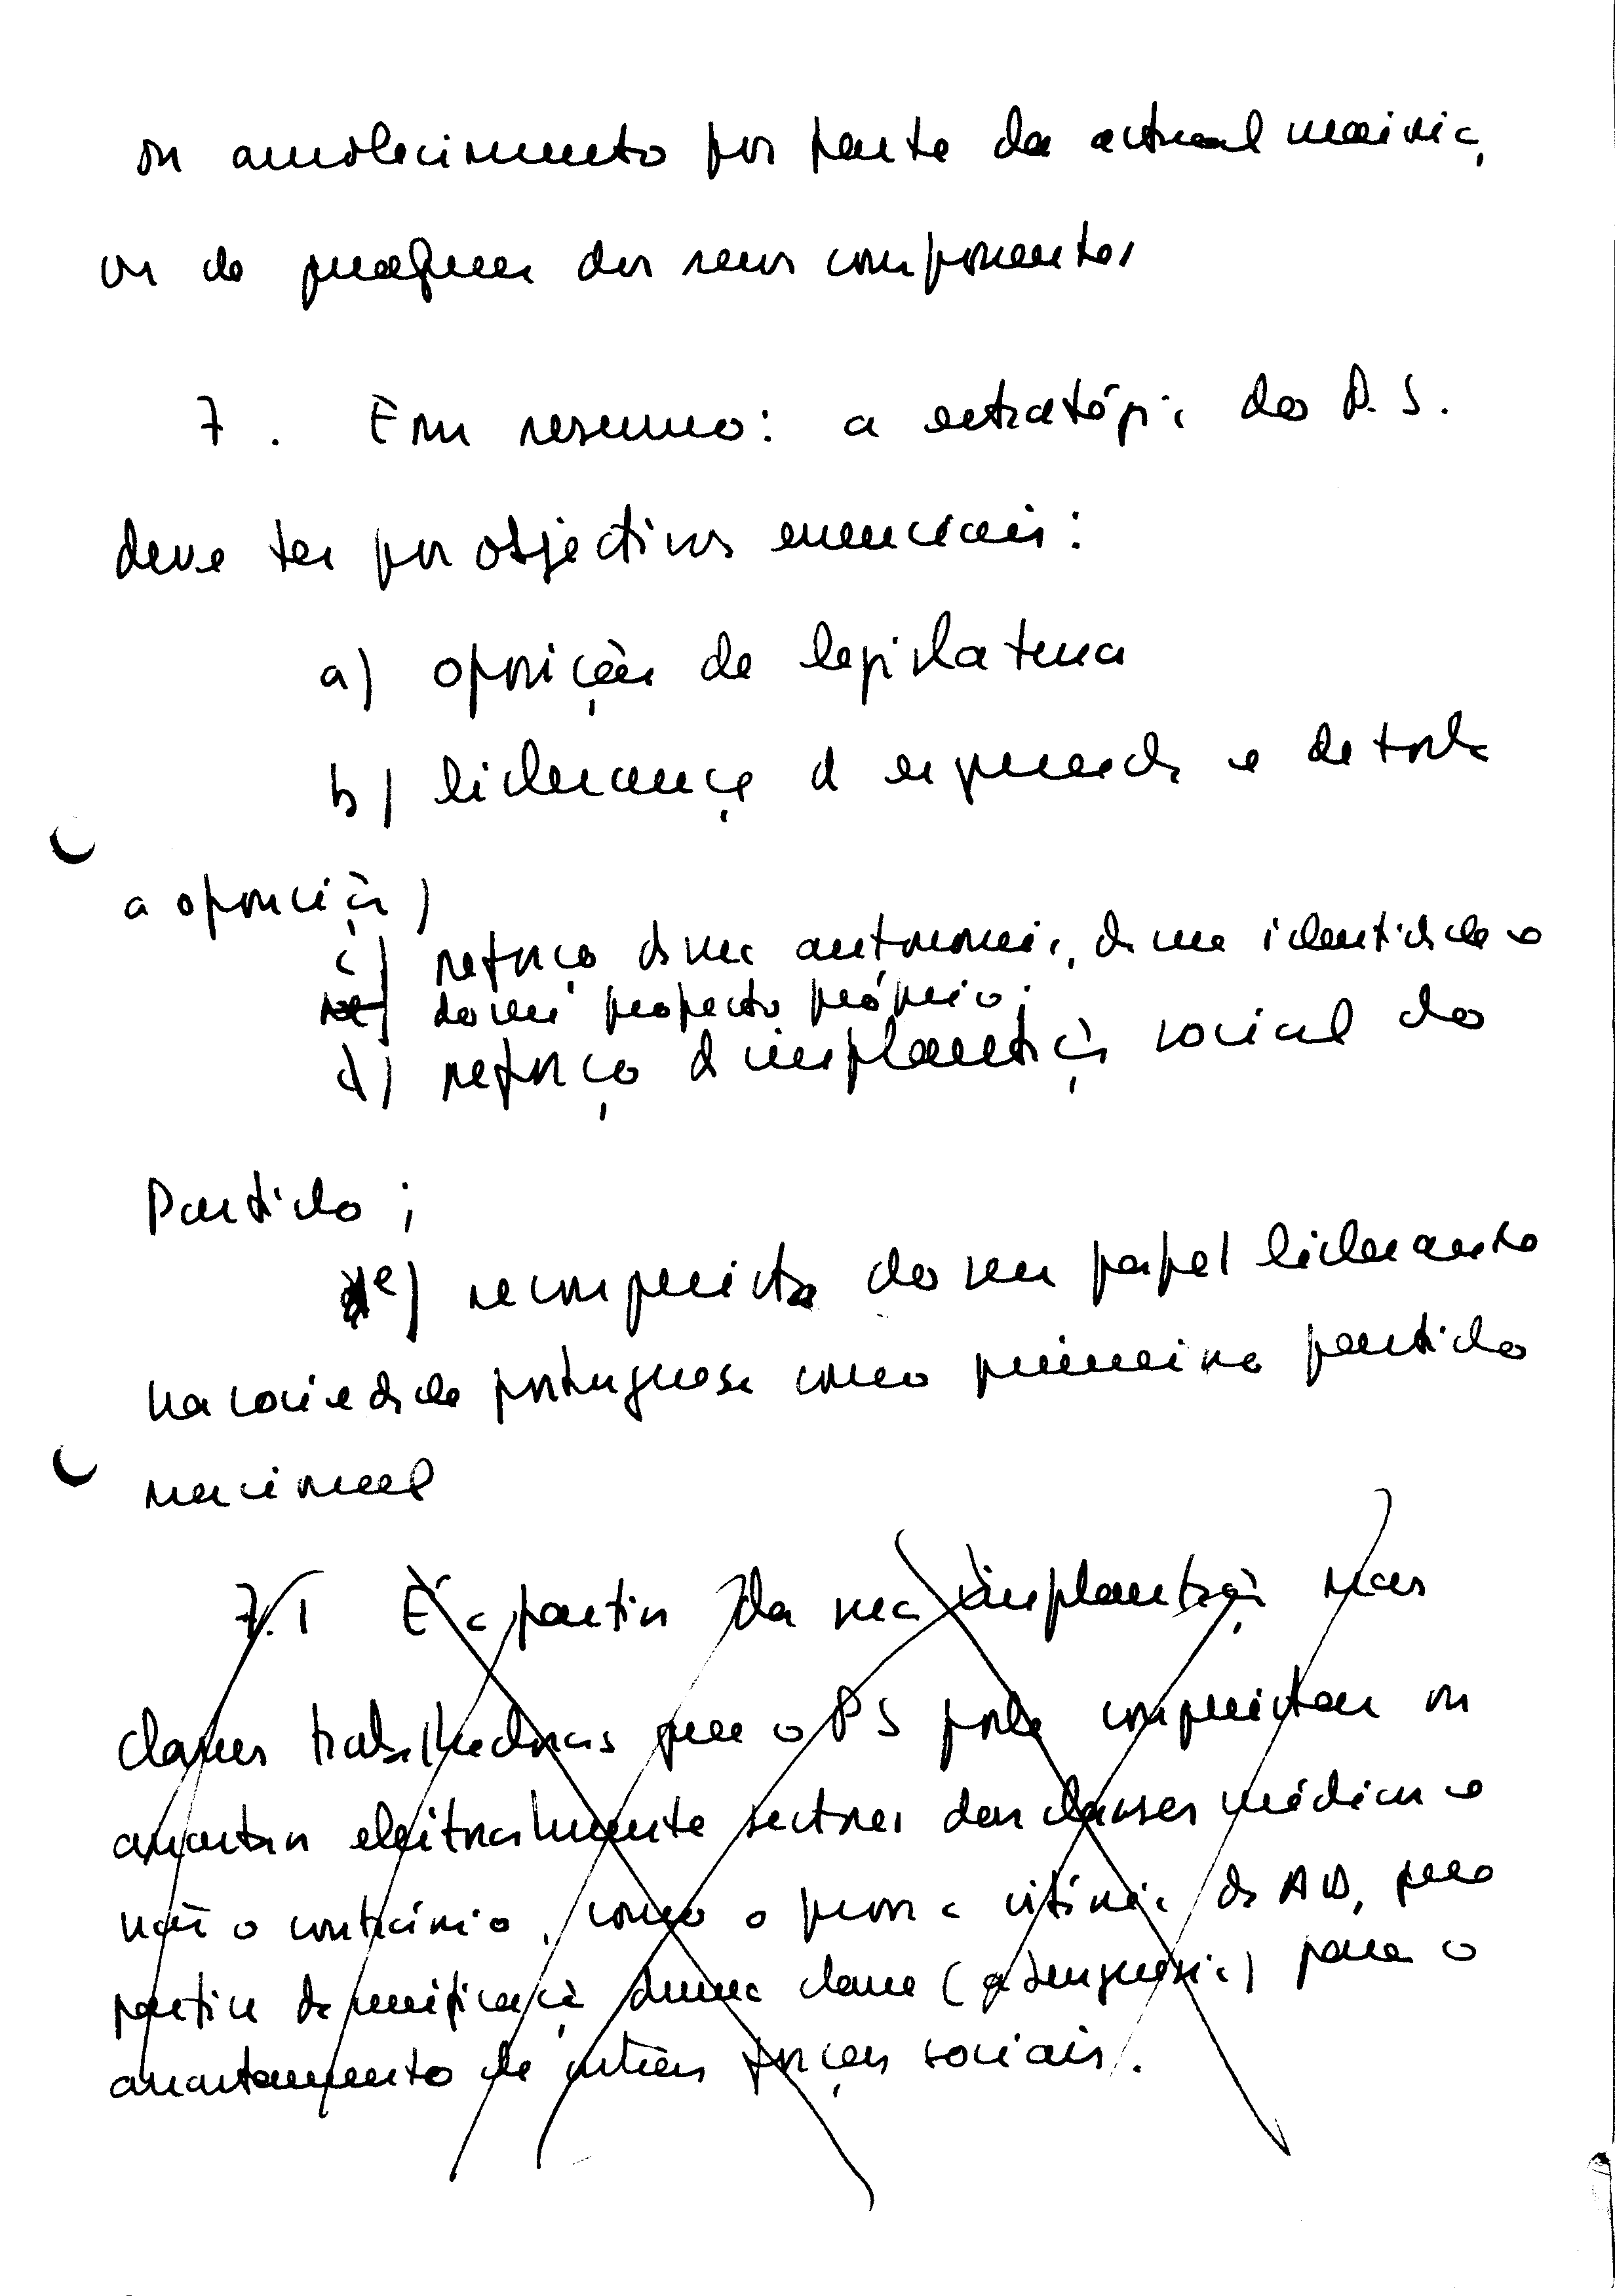 ou amolecimento por parte da actual maioria,
ou de qualquer dos seus componentes
7. Em resumo: a estratégia do P.S.
deve ter por objectivos essenciais:
a) oposição de legislatura
b) liderança da esquerda e de toda
a oposição)
c) reforço da sua autonomia, da sua identidade e
do seu projecto próprio;
d) reforço da implantação social do
Partido;
e) reconquista do seu papel liderante
na sociedade portuguesa como primeiro partido
nacional
7.1 É a partir da sua implantação nas
classes trabalhadoras que o PS pode conquistar ou
arrastar eleitoralmente sectores das classes médias e
não o contrário, como o prova a vitória da AD, que
partiu da unificação duma classe (a burguesia) para o
arrastamento de outras forças sociais.